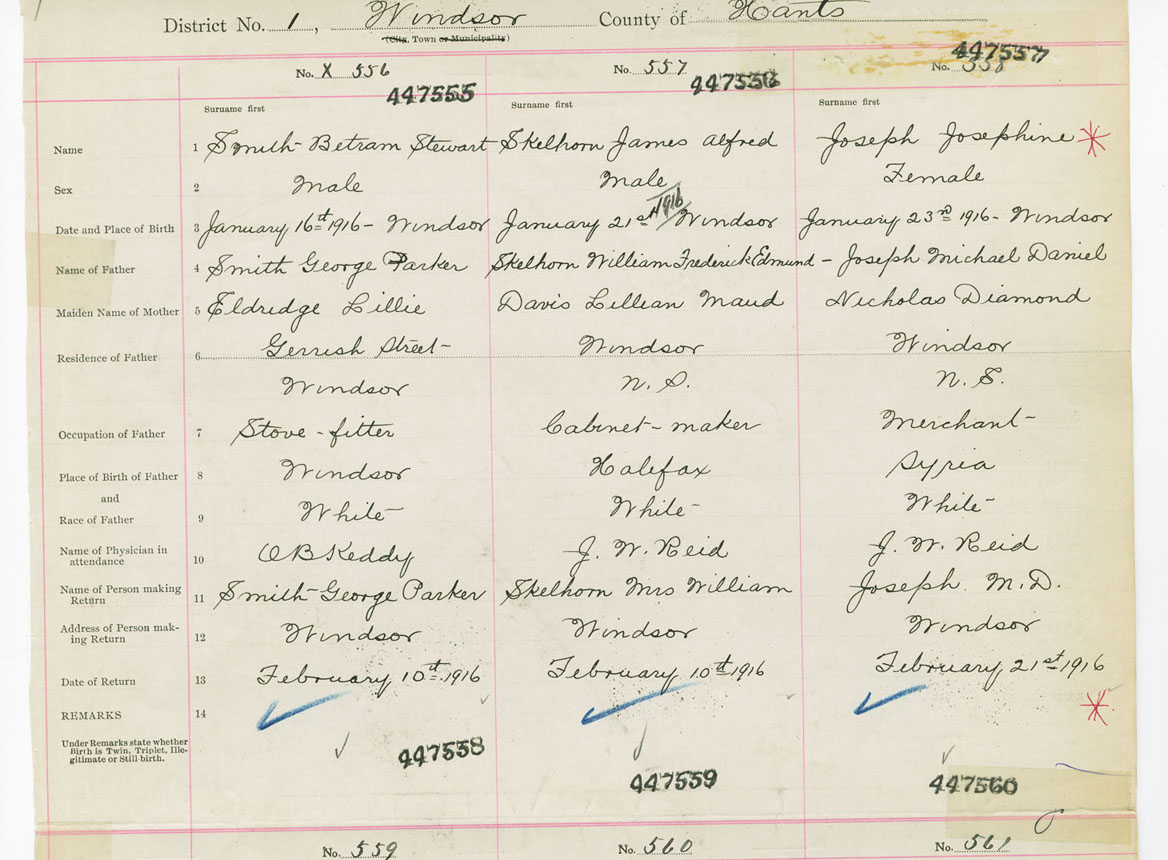 District No. 1, Windsor County of Hants
(City, Town or Municipality)
No. X 556 No. 557 No. 558
447555 447556 447557
Surname first Surname first Surname first
Name 1 Smith Betram Stewart Skelhorn James Alfred Joseph Josephine
Sex 2 Male Male Female
1916
Date and Place of Birth 3 January 16th 1916 - Windsor January 21st Windsor January 23rd 1916 - Windsor
Name of Father 4 Smith George Parker Skelhorn William Frederick Edmund - Joseph Michael Daniel
Maiden Name of Mother 5 Eldredge Lillie Davis Lillian Maud Nicholas Diamond
Residence of Father 6 Gerrish Street - Windsor Windsor
Windsor N. S. N. S.
Occupation of Father 7 Stove-fitter Cabinet-maker Merchant
Place of Birth of Father 8 Windsor Halifax Syria
and
Race of Father 9 White White White
Name of Physician in attendance 10 O B Keddy J. W. Reid J. W. Reid
Name of Person making Return 11 Smith George Parker Skelhorn Mrs William Joseph M. D.
Address of Person mak-ing Return 12 Windsor Windsor Windsor
Date of Return 13 February 10th 1916 February 10th 1916 February 21st 1916
REMARKS 14
Under Remarks state whether
Birth is Twin, Triplet, Ille-
gitimate or Still birth.
447558 447559 447560
No. 559 No. 560 No. 561